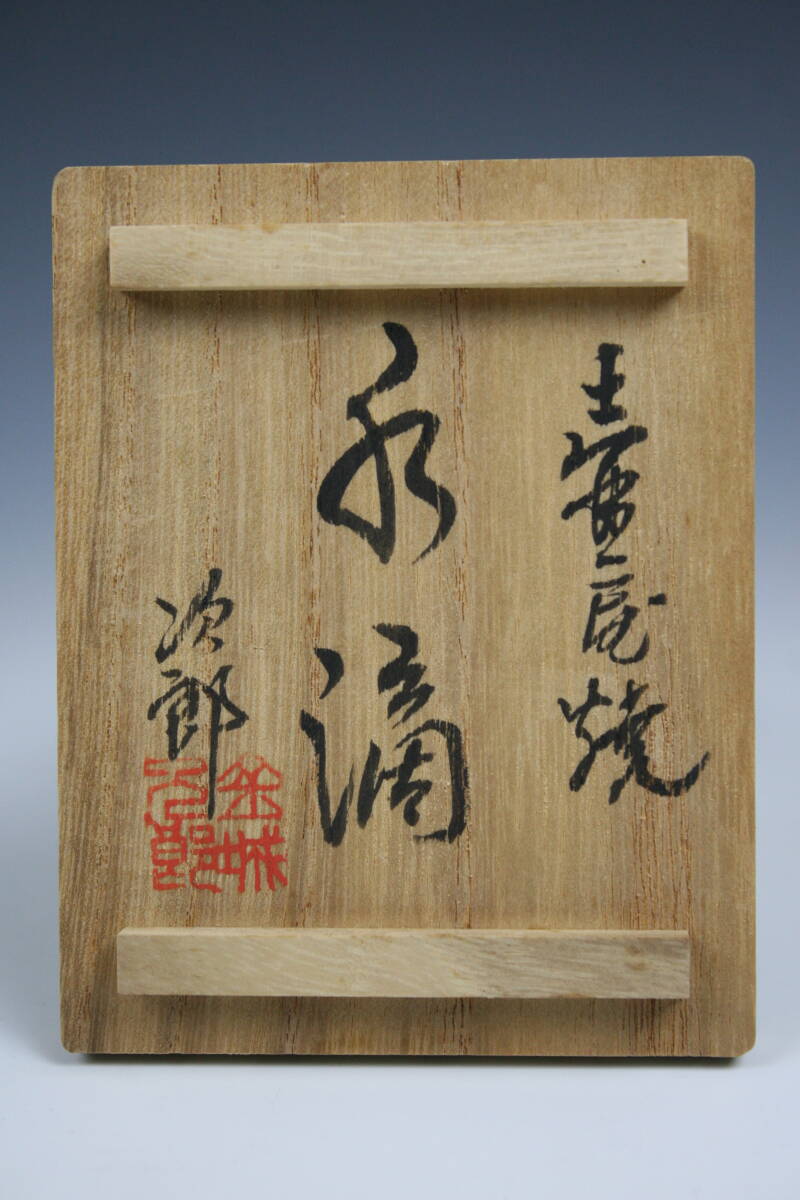 壺屋焼
水滴
次郎
金城次郎